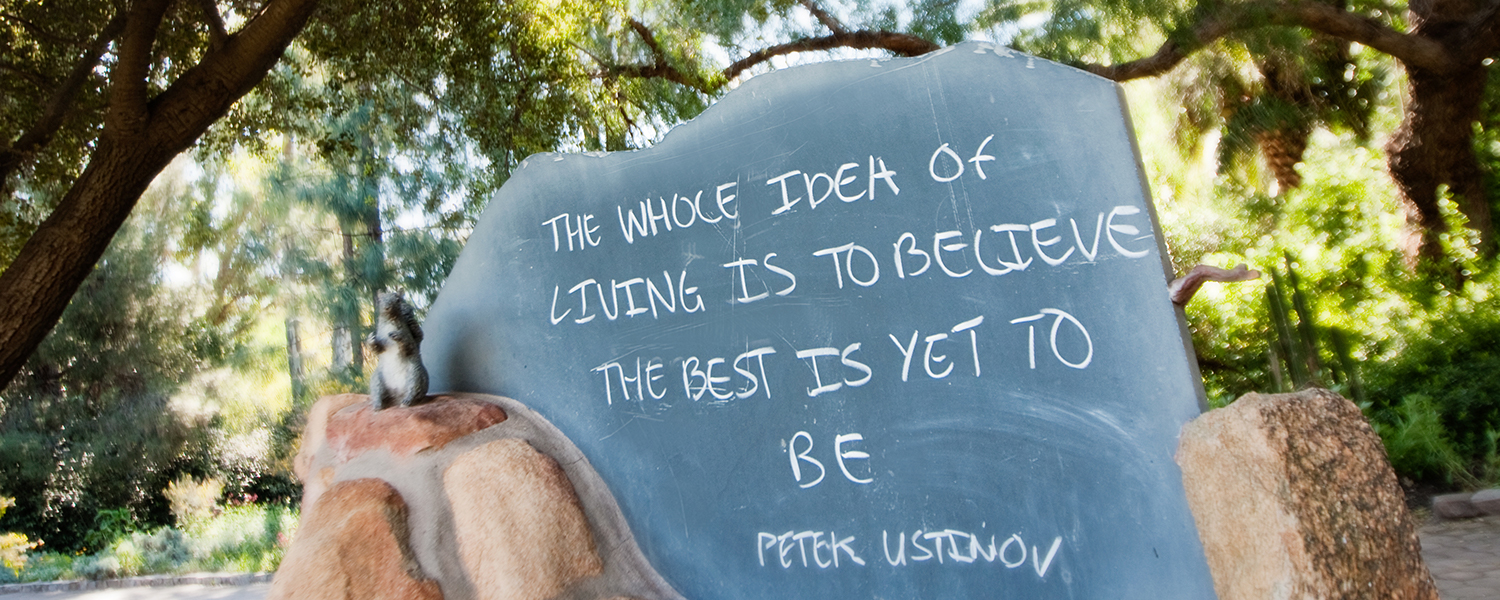 THE WHOLE IDEA OF
LIVING IS TO BELIEVE
THE BEST IS YET TO
BE
PETER USTINOV